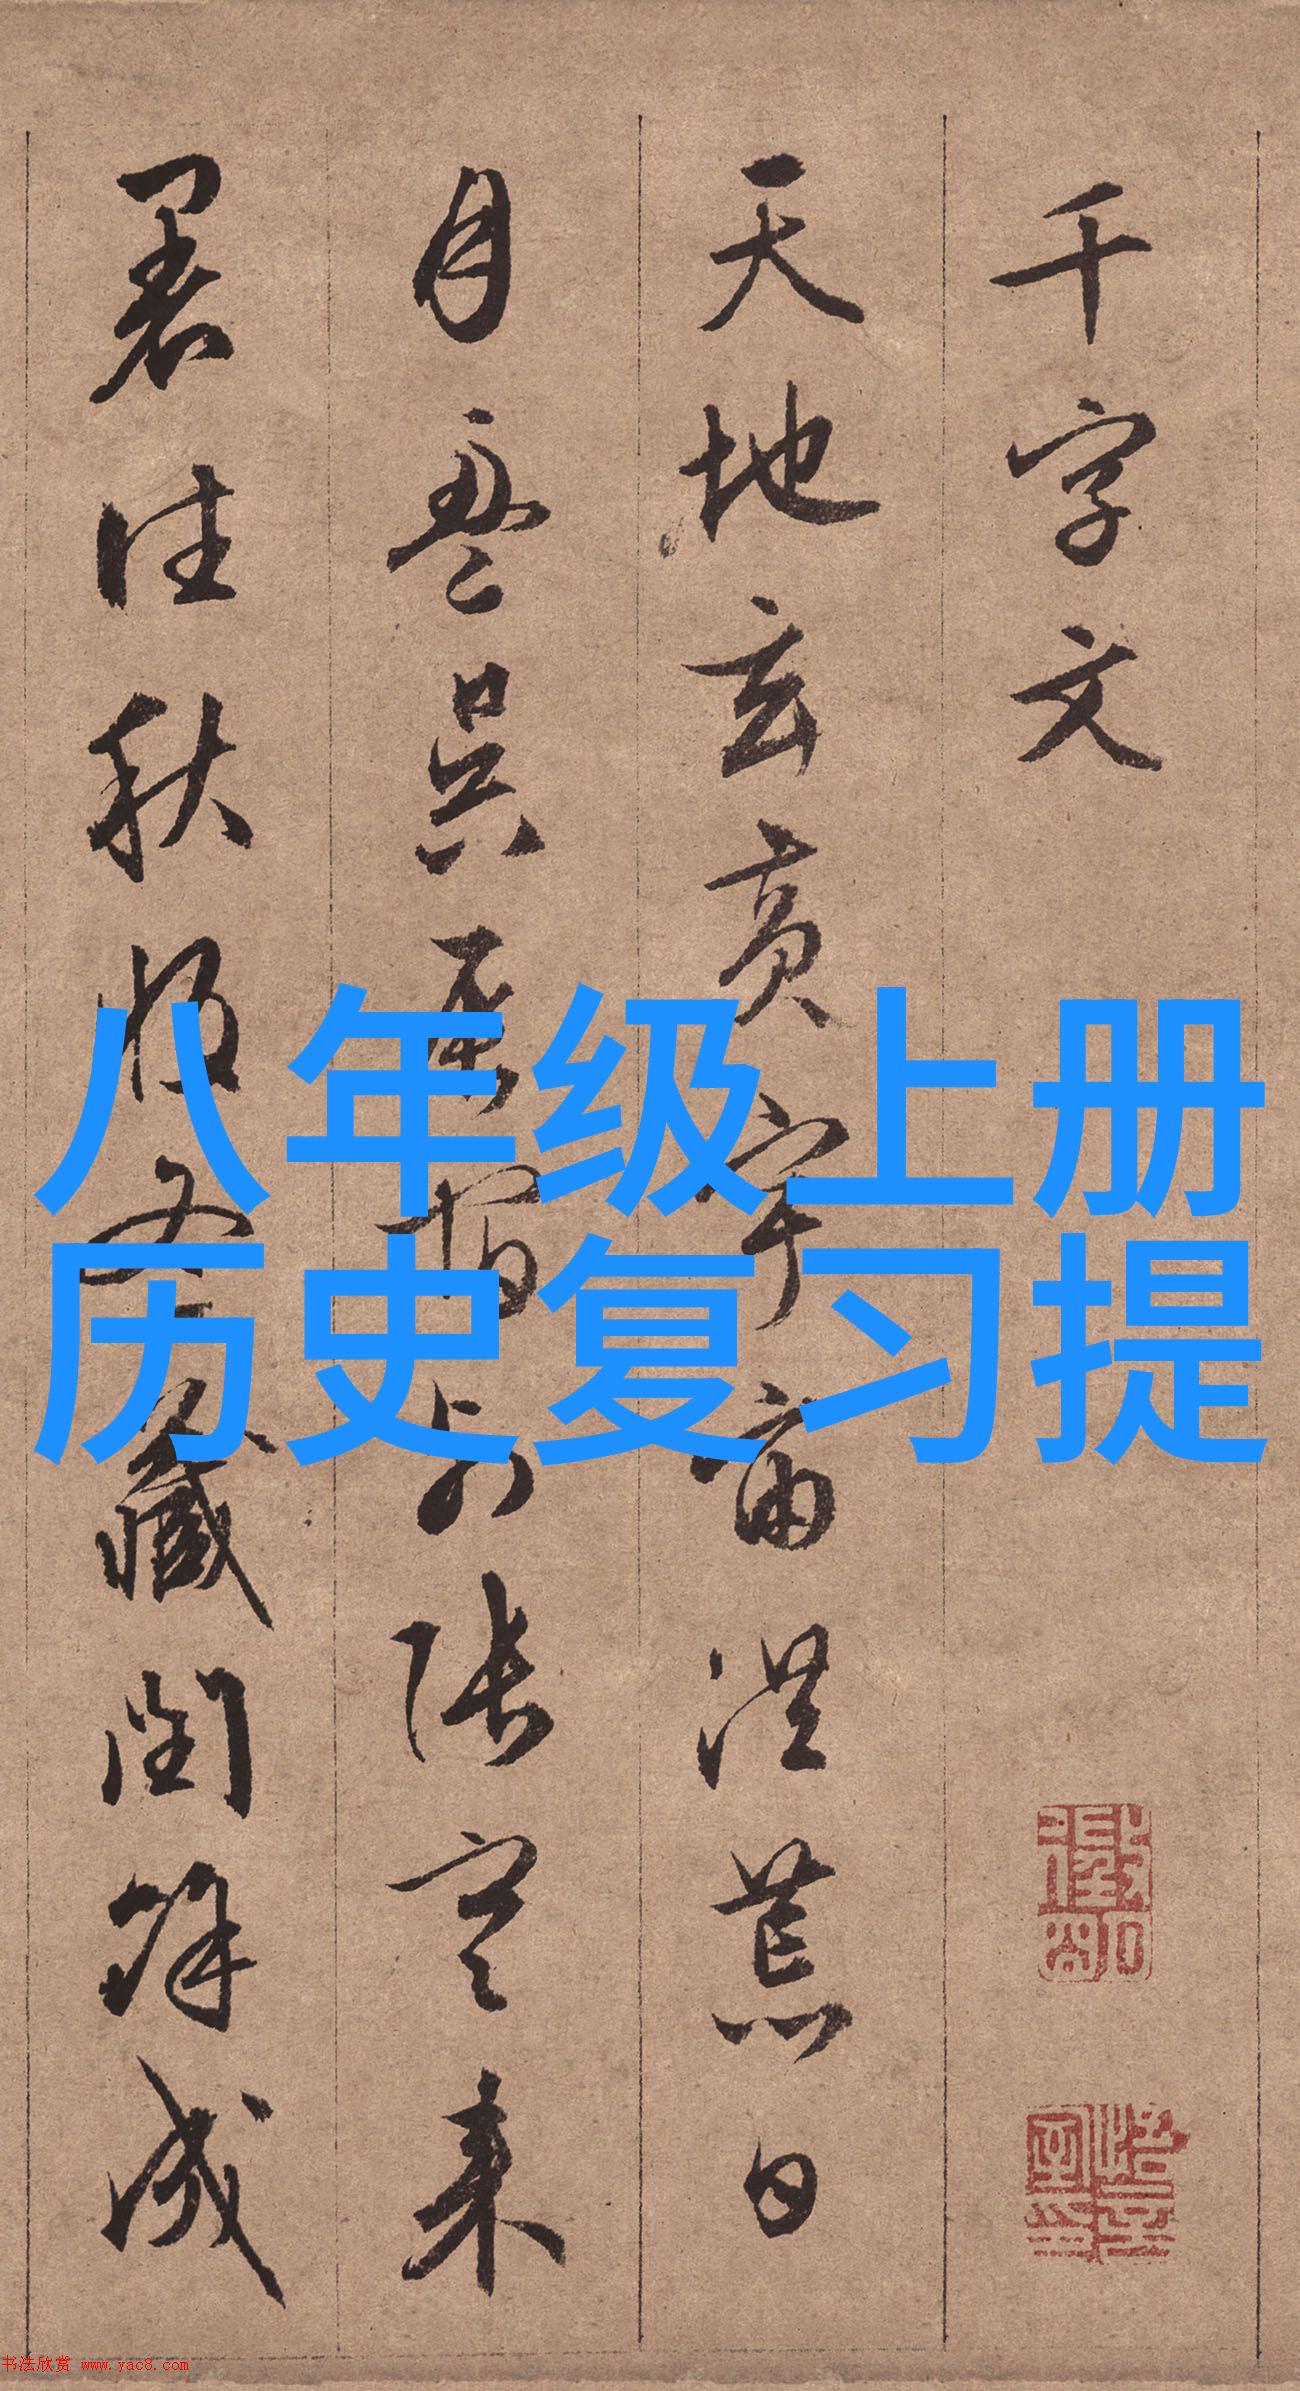 千字文
天地玄黄宇宙洪荒日
月盈昃辰宿列張寒来
暑往秋收冬藏閏餘成
八年级上册
历史复习提
书法欣赏 www.yac8.com